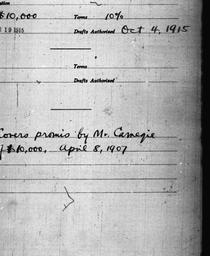 ation
$10,000 Terms 10%
19 1915 Drafts Authorized Oct 4, 1915
Terms
Drafts Authorized
Covers promis by Mr. Carnegie
of $10,000, April 8, 1907